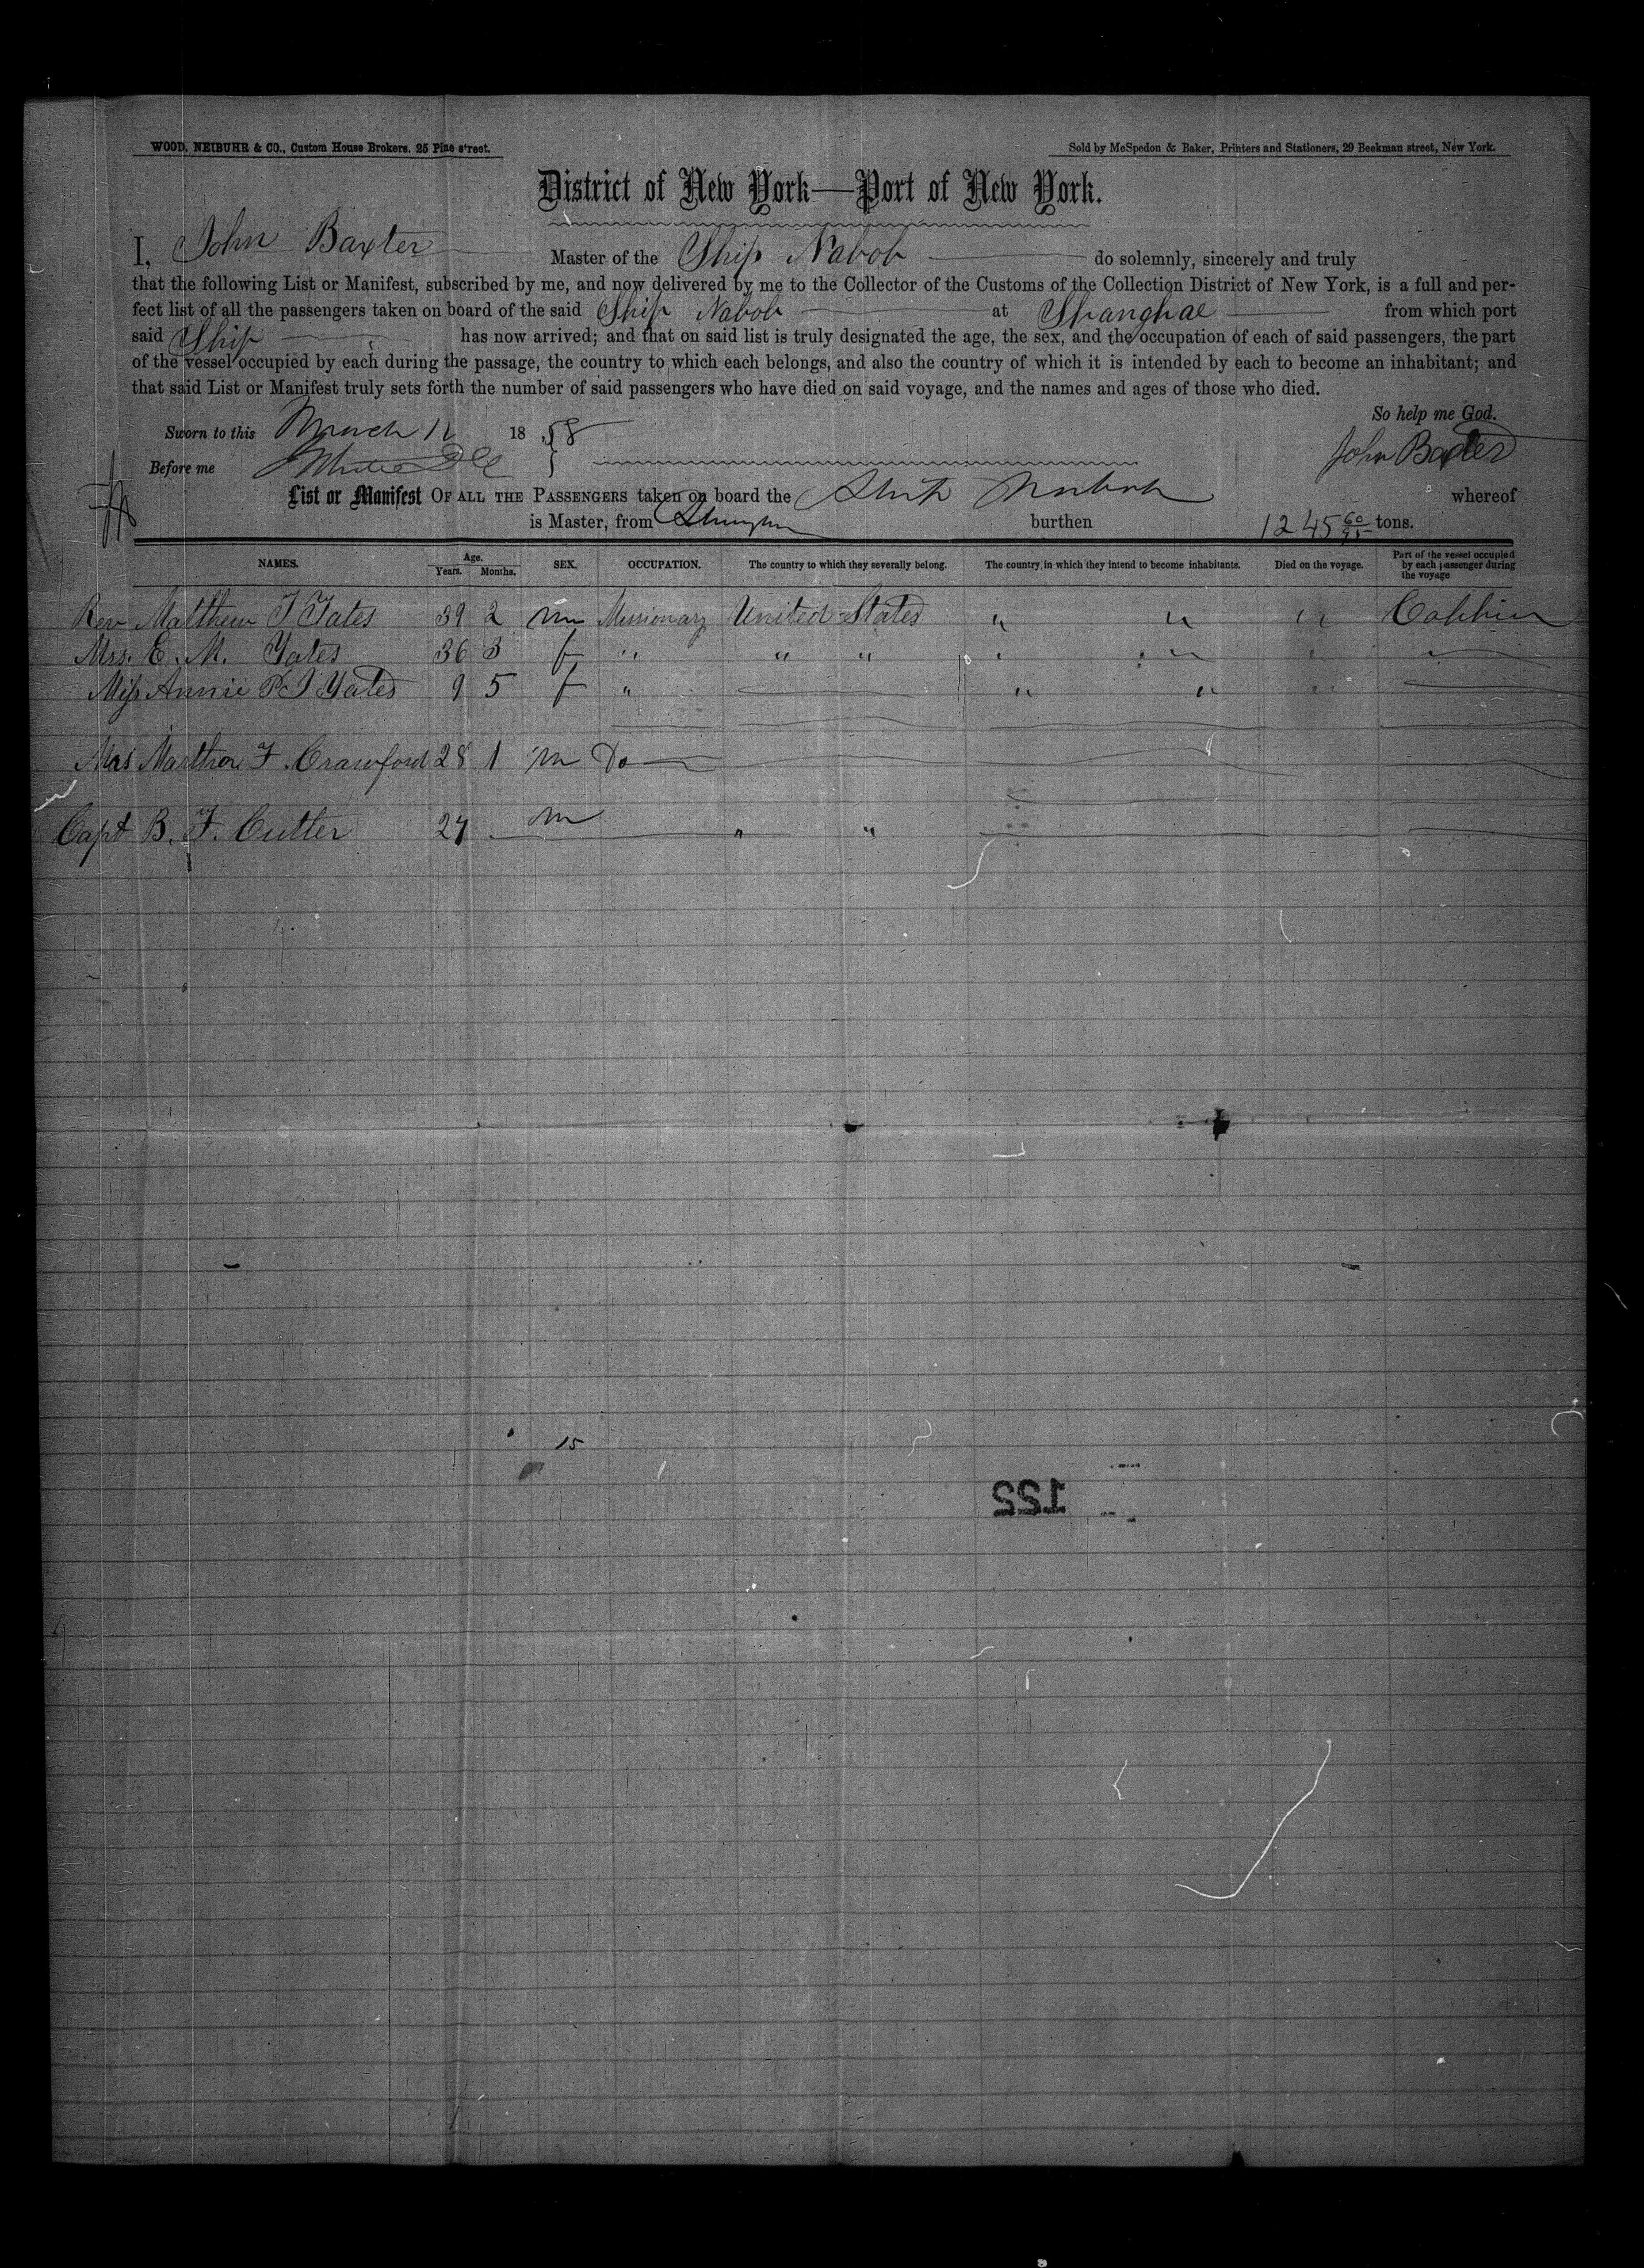 WOOD, NEIBUHR & CO., Custom House Brokers, 25 Pine street.
Sold by McSpedon & Baker, Printers and Stationers, 29 Beekman street, New York.
District of New York—Port of New York.
I, John Baxter Master of the Ship Nabob do solemnly, sincerely and truly
that the following List or Manifest, subscribed by me, and now delivered by me to the Collector of the Customs of the Collection District of New York, is a full and per-
fect list of all the passengers taken on board of the said Ship Nabob at Shanghae from which port
said Ship has now arrived; and that on said list is truly designated the age, the sex, and the occupation of each of said passengers, the part
of the vessel occupied by each during the passage, the country to which each belongs, and also the country of which it is intended by each to become an inhabitant; and
that said List or Manifest truly sets forth the number of said passengers who have died on said voyage, and the names and ages of those who died.
So help me God.
Sworn to this March 11 1858
John Baxter
Before me
List or Manifest OF ALL THE PASSENGERS taken on board the Ship Nabob whereof
is Master, from Shanghae burthen 1245 60/95 tons.
NAMES. Age. Years. Months. SEX. OCCUPATION. The country to which they severally belong. The country in which they intend to become inhabitants. Died on the voyage. Part of the vessel occupied by each passenger during the voyage
Rev Matthew T Yates 39 2 m Missionary United States " " " " Cabbin
Mrs. E. M. Yates 36 3 f " " " " "
Miss Annie P J Yates 9 5 f " " "
Mrs Martha F. Crawford 28 1 m Do
Capt B. F. Cutler 27 m " "
15
122